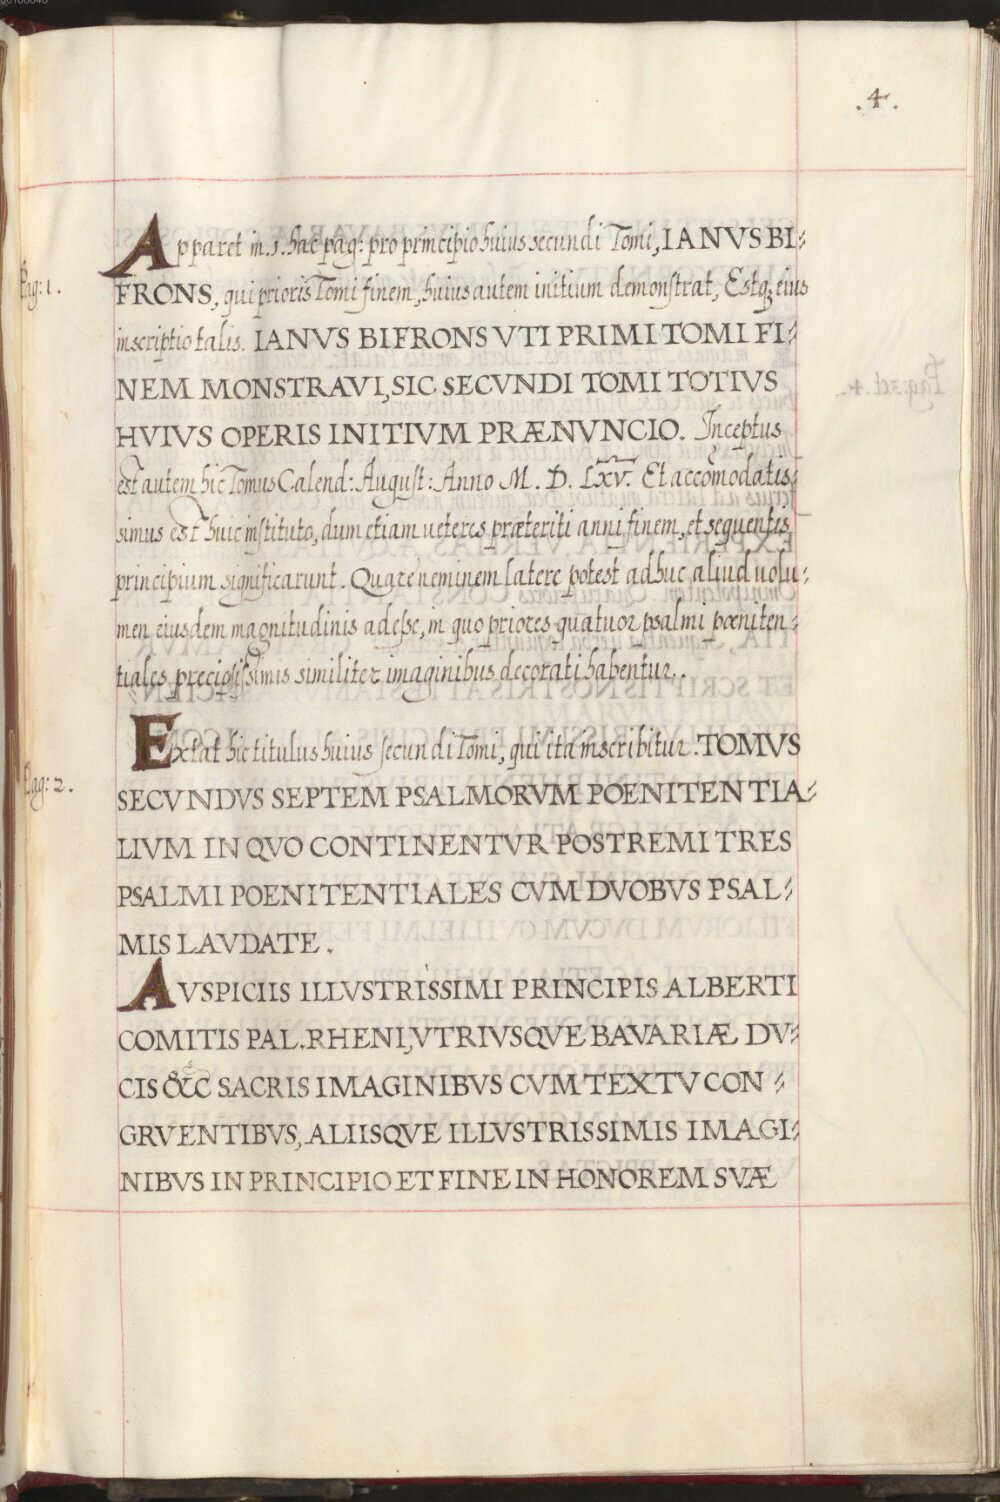 .4.
Apparet in .1. hac pag: pro principio huius secundi Tomi, IANVS BI=
Pag: 1.
FRONS, qui prioris Tomi finem, huius autem initium demonstrat, Estq; eius
inscriptio talis. IANVS BIFRONS VTI PRIMI TOMI FI=
NEM MONSTRAVI, SIC SECVNDI TOMI TOTIVS
HVIVS OPERIS INITIVM PRÆNVNCIO. Inceptus
est autem hic Tomus Calend: August: Anno M. D. LXV. Et accomodatis=
simus est huic instituto, dum etiam ueteres præteriti anni finem, et sequentis
principium significarunt. Quare neminem latere potest adhuc aliud uolu=
men eiusdem magnitudinis adesse, in quo priores quatuor psalmi pœniten=
tiales preciosissimis similiter imaginibus decorati habentur.
Extat hic titulus huius secundi Tomi, qui ita inscribitur. TOMVS
Pag: 2.
SECVNDVS SEPTEM PSALMORVM POENITENTIA=
LIVM IN QVO CONTINENTVR POSTREMI TRES
PSALMI POENITENTIALES CVM DVOBVS PSAL=
MIS LAVDATE.
AVSPICIIS ILLVSTRISSIMI PRINCIPIS ALBERTI
COMITIS PAL. RHENI, VTRIVSQVE BAVARIÆ DV=
CIS &C SACRIS IMAGINIBVS CVM TEXTV CON=
GRVENTIBVS, ALIISQVE ILLVSTRISSIMIS IMAGI=
NIBVS IN PRINCIPIO ET FINE IN HONOREM SVÆ